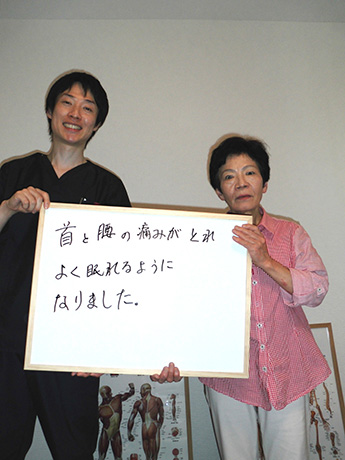 首と腰の痛みがとれ
よく眠れるように
なりました。